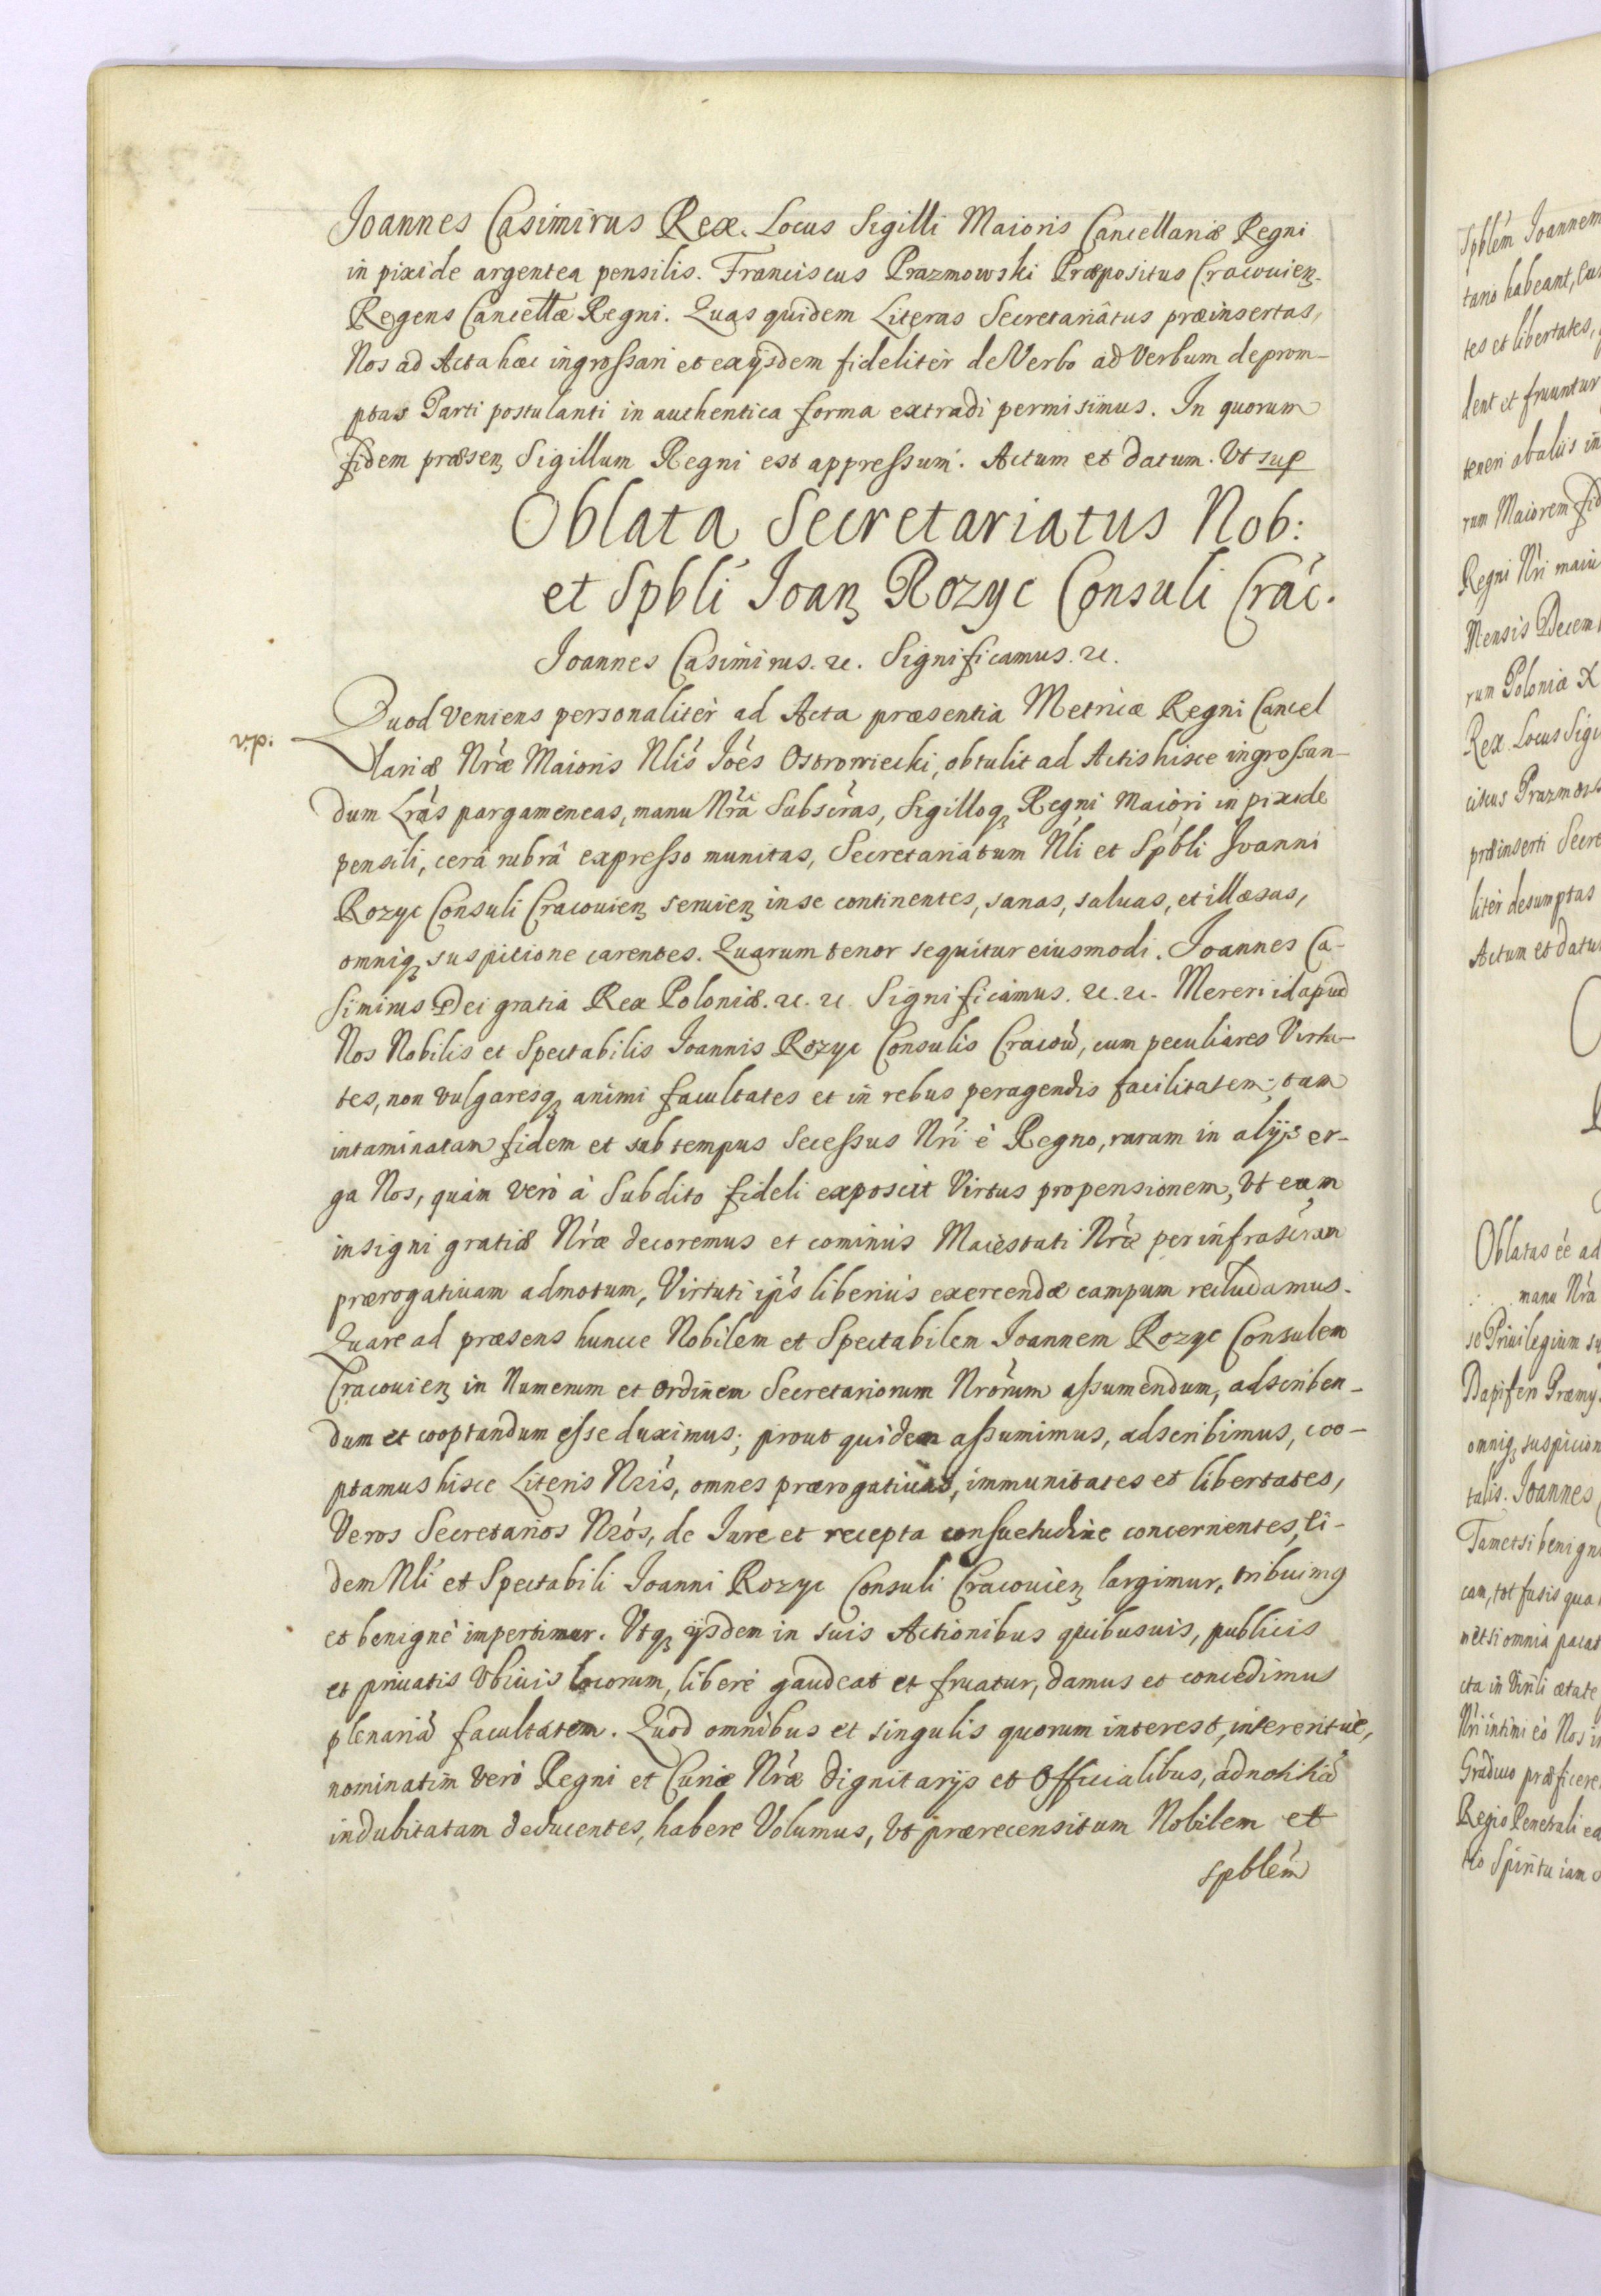 Joannes Casimirus Rex. Locus Sigilli Maioris Cancellariæ Regni
in pixide argentea pensilis. Franciscus Prazmowski Præpositus Cracouien.
Regens Cancellæ Regni. Quas quidem Literas Secretariâtus præinsertas,
Nos ad Acta hæc ingrossari et exijsdem fidelitèr de Verbo ad Verbum deprom-
ptas Parti postulanti in authentica forma extradi permisimus. In quorum
fidem præsen Sigillum Regni est appressum. Actum et datum. Ut sup
Oblata Secretariatus Nob:
et Spbli Joan Rozyc Consuli Crac.
Joannes Casimirus. &c. Significamus. &c.
Quod Veniens personalitèr ad Acta præsentia Metricæ Regni Cancel
lariæ Nræ Maioris Nlis Joés Ostrowiecki, obtulit ad Actis hisce ingrossan-
dum Lras pargameneas, manu Nra Subscras, Sigilloq Regni Maiori in pixide
pensili, cerâ rubrâ expresso munitas, Secretariatum Nli et Spbli Joanni
Rozyc Consuli Cracouien seruien in se continentes, sanas, saluas, et illæsas,
omniq suspitione carentes. Quarum tenor sequitur eiusmodi. Joannes Ca-
simirus Dei gratia Rex Poloniæ. &c. &c Significamus. &c. &c. Mereri id apud
Nos Nobilis et Spectabilis Joannis Rozyc Consulis Cracou, cum peculiares Virtu-
tes, non vulgaresq animi facultates et in rebus peragendis facilitatem; tam
intaminatam fidem et sub tempus Secessus Nri è Regno, raram in alijs er-
ga Nos, quàm verò à Subdito fideli exposcit Virtus propensionem, Ut eum
insigni gratiæ Nræ decoremus et cominùs Maiestati Nræ per infrascram
prærogatiuam admotum, Virtuti ips liberiùs exercendæ campum recludamus.
Quare ad præsens huncce Nobilem et Spectabilem Joannem Rozyc Consulem
Cracouien in Numerum et Ordinem Secretariorum Nrorum assumendum, adscriben-
dum et cooptandum esse duximus; prout quidem assumimus, adscribimus, coo-
ptamus hisce Literis Nris, omnes prærogatiuas, immunitates et libertates,
Veros Secretarios Nros, de Jure et recepta consuetudine concernentes, ei-
dem Nli et Spectabili Joanni Rozyc Consuli Cracouien largimur, tribuimg
et benignè impertimur. Utq ijsdem in suis Actionibus quibusuis, publicis
et priuatis Vbiuis locorum, liberè gaudeat et fruatur, damus et concedimus
plenariã facultatem. Quod omnibus et singulis quorum interest, intereritue,
nominatim verò Regni et Curiæ Nræ dignitarijs et Officialibus, ad notitiã
indubitatam deducentes, habere Volumus, Ut prærecensitum Nobilem et
spblem
Spblem Joannem
tes et libertates,
dent et fruuntur
rum Maiorem fid
Regni Nri maiu
Mensis Decem
rum Poloniæ &
Rex Locus Sigi
ciscus Prazmows
præinserti Secre
litèr desumptas
Actum et datu
Oblatas ée ad
manu Nra
se Priuilegium su
Dapiferi Præmy
omniq suspicion
talis. Joannes
Tametsi benign
Gradiuo præficere